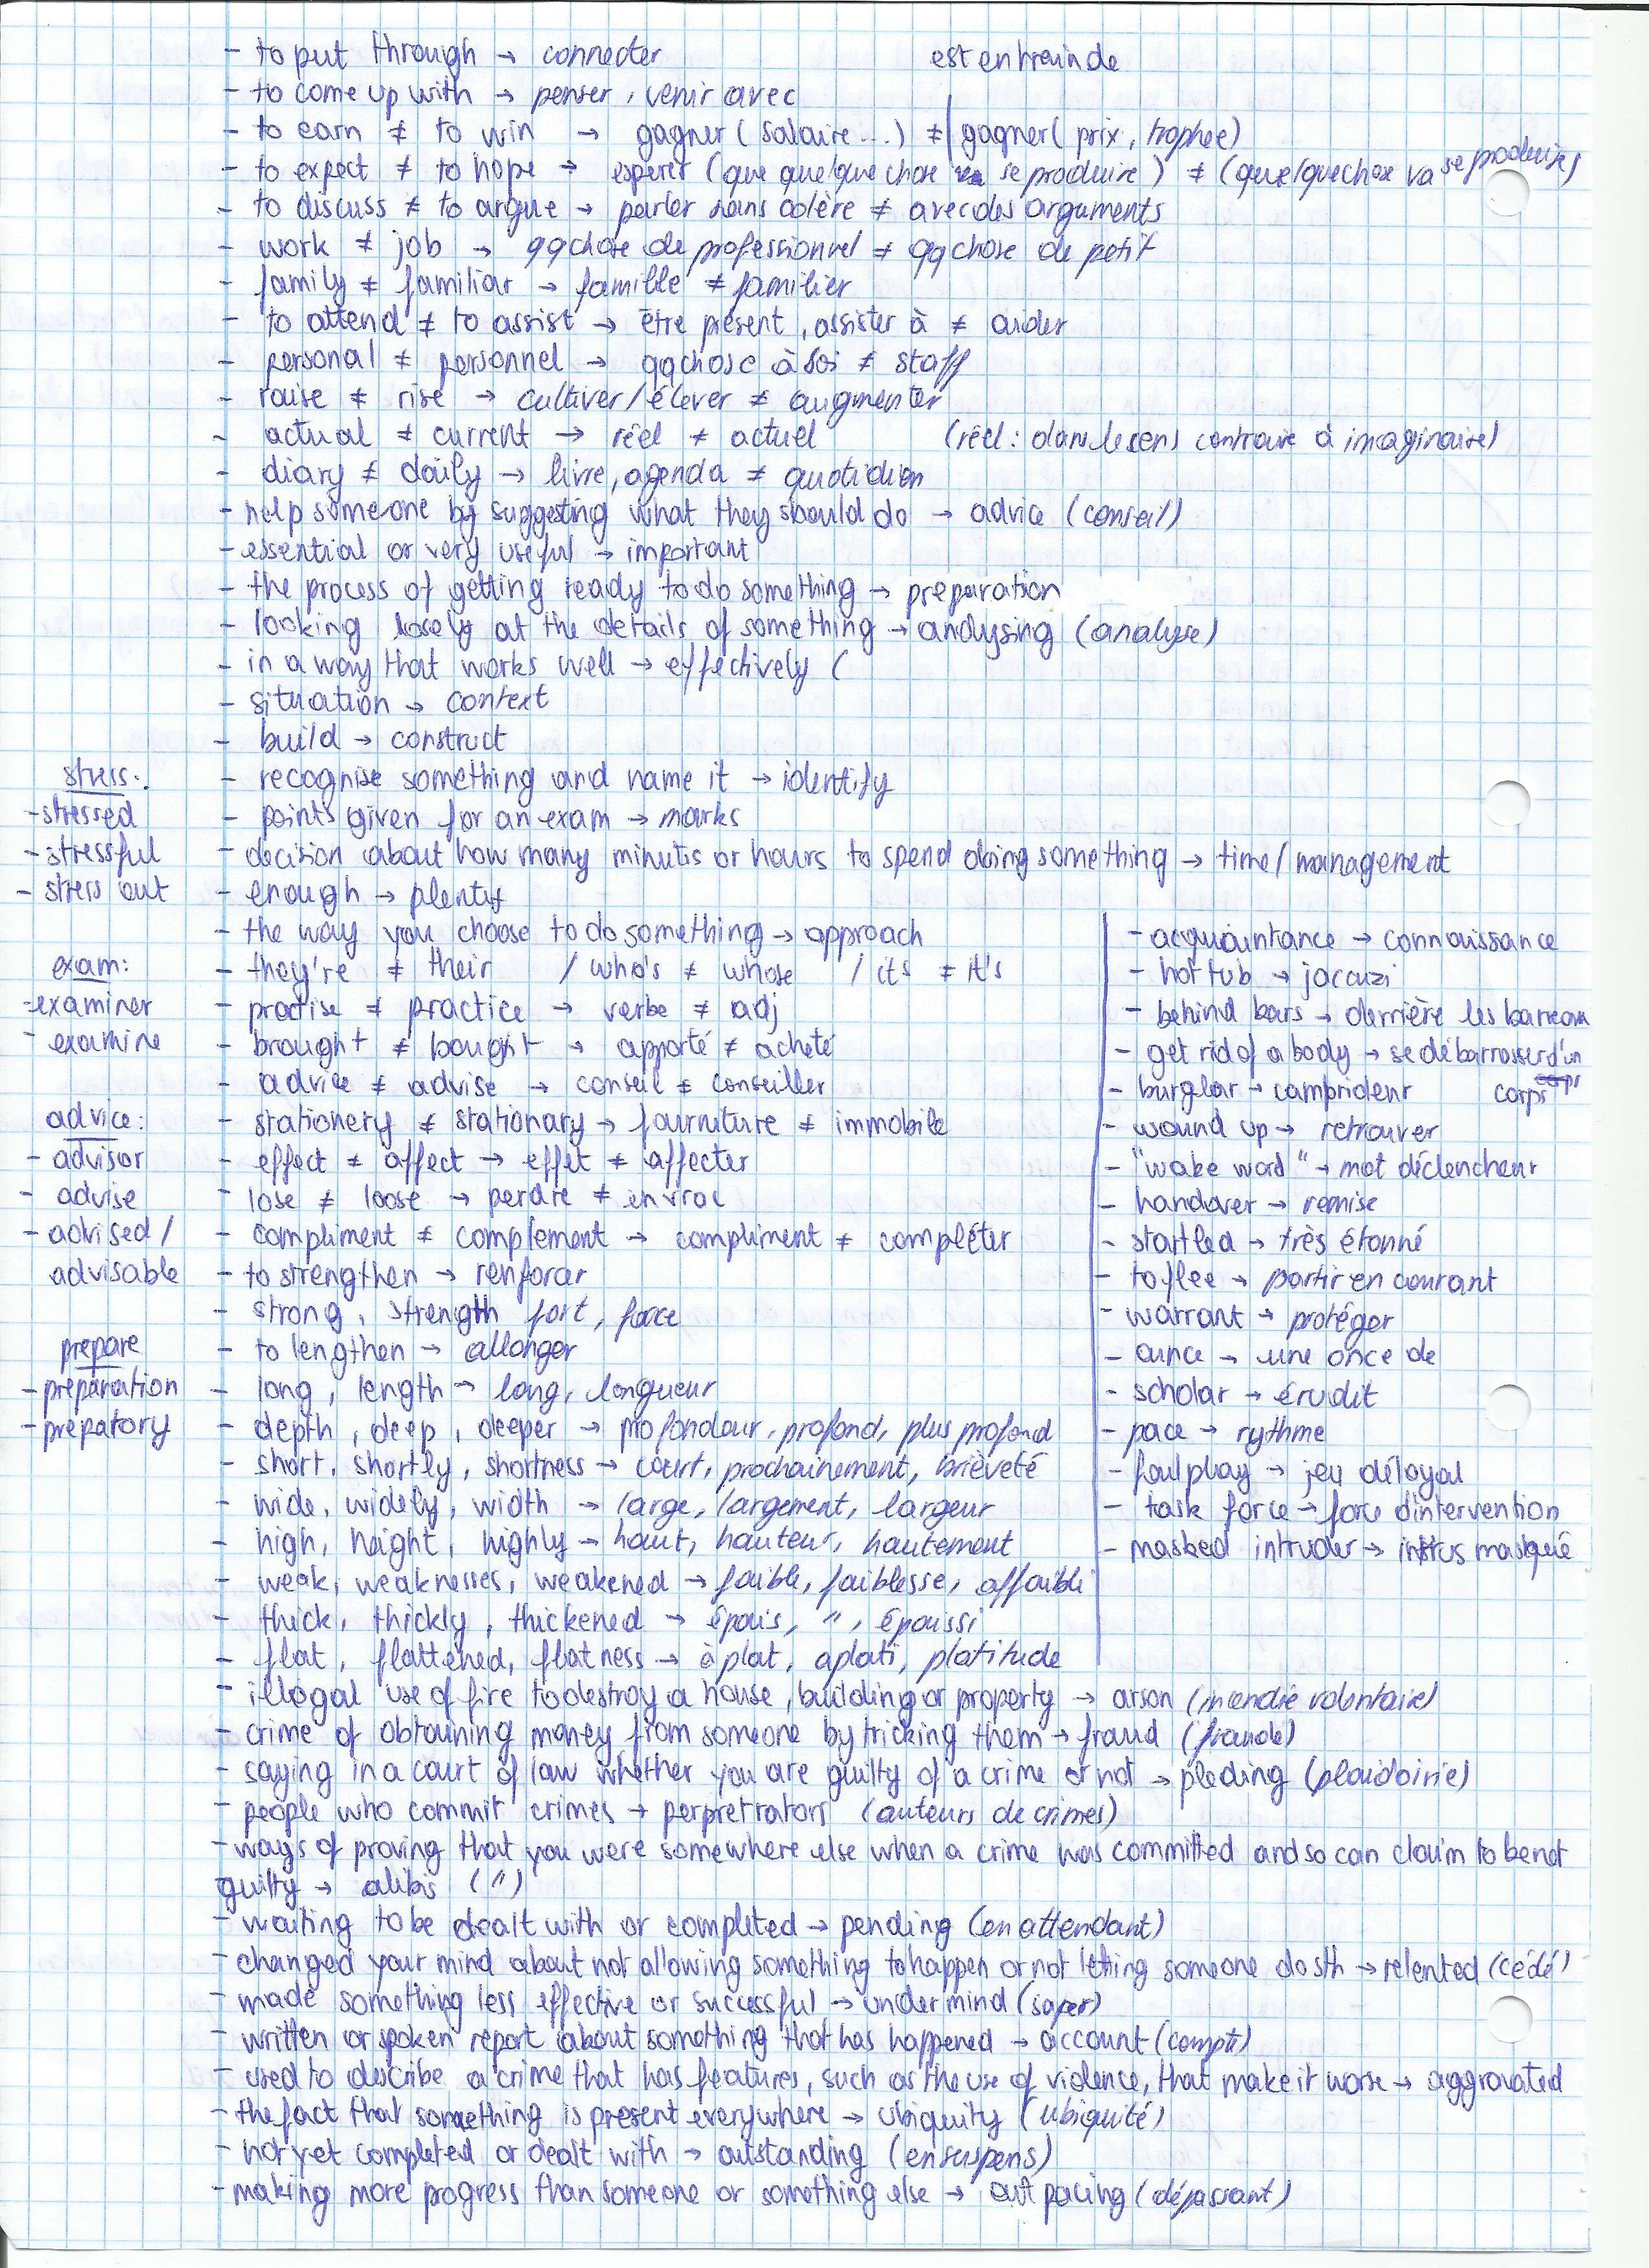 - to put through → connecter
est en train de
- to come up with → penser, venir avec
- to earn ≠ to win → gagner (salaire...) ≠ gagner (prix, trophée)
- to expect ≠ to hope → espérer (que quelque chose se produire) ≠ (quelque chose va se produire)
- to discuss ≠ to argue → parler sans colère ≠ avec des arguments
- work ≠ job → qqchose de professionnel ≠ qqchose de petit
- family ≠ familiar → famille ≠ familier
- to attend ≠ to assist → être présent, assister à ≠ aider
- personal ≠ personnel → qqchose à soi ≠ staff
- raise ≠ rise → cultiver/élever ≠ augmenter
- actual ≠ current → réel ≠ actuel (réel : dans le sens contraire à imaginaire)
- diary ≠ daily → livre, agenda ≠ quotidien
- help someone by suggesting what they should do → advice (conseil)
- essential or very useful → important
- the process of getting ready to do something → preparation
- looking losely at the details of something → analysing (analyse)
- in a way that works well → effectively (
- situation → context
- build → construct
- recognise something and name it → identify
- points given for an exam → marks
- decision about how many minutes or hours to spend doing something → time/management
- enough → plenty
- the way you choose to do something → approach
- they're ≠ their / who's ≠ whose / its ≠ it's
- practise ≠ practice → verbe ≠ adj
- brought ≠ bought → apporté ≠ acheté
- advice ≠ advise → conseil ≠ conseiller
- stationery ≠ stationary → fourniture ≠ immobile
- effect ≠ affect → effet ≠ affecter
- lose ≠ loose → perdre ≠ en vrac
- compliment ≠ complement → compliment ≠ compléter
- to strengthen → renforcer
- strong, strength fort, force
- to lengthen → allonger
- long, length → long, longueur
- depth, deep, deeper → profondeur, profond, plus profond
- short, shortly, shortness → court, prochainement, brièveté
- wide, widely, width → large, largement, largeur
- high, height, highly → haut, hauteur, hautement
- weak, weaknesses, weakened → faible, faiblesse, affaibli
- thick, thickly, thickened → épais, ", épaissi
- flat, flattened, flatness → à plat, aplati, platitude
- illegal use of fire to destroy a house, building or property → arson (incendie volontaire)
- crime of obtaining money from someone by tricking them → fraud (fraude)
- saying in a court of law whether you are guilty of a crime or not → pleding (plaidoirie)
- people who commit crimes → perpretrators (auteurs de crimes)
- ways of proving that you were somewhere else when a crime was committed and so can claim to be not
guilty → alibis (")
- waiting to be dealt with or completed → pending (en attendant)
- changed your mind about not allowing something to happen or not letting someone do sth → relented (cédé)
- made something less effective or successful → undermind (saper)
- written or spoken report about something that has happened → account (compte)
- used to describe a crime that has features, such as the use of violence, that make it worse → aggravated
- the fact that something is present everywhere → ubiquity (ubiquité)
- not yet completed or dealt with → outstanding (en suspens)
- making more progress than someone or something else → out pacing (dépassant)
stress:
- stressed
- stressful
- stress out
exam:
- examiner
- examine
advice:
- advisor
- advise
- advised/
advisable
prepare
- preparation
- prepatory
- acquaintance → connaissance
- hot tub → jacuzi
- behind bars → derrière les barreaux
- get rid of a body → se débarrasser d'un
corps
- burglar → cambrioleur
- wound up → retrouver
- "wake word" → mot déclencheur
- handover → remise
- startled → très étonné
- to flee → partir en courant
- warrant → protéger
- ounce → une once de
- scholar → érudit
- pace → rythme
- foul play → jeu déloyal
- task force → force d'intervention
- masked intruder → intrus masqué